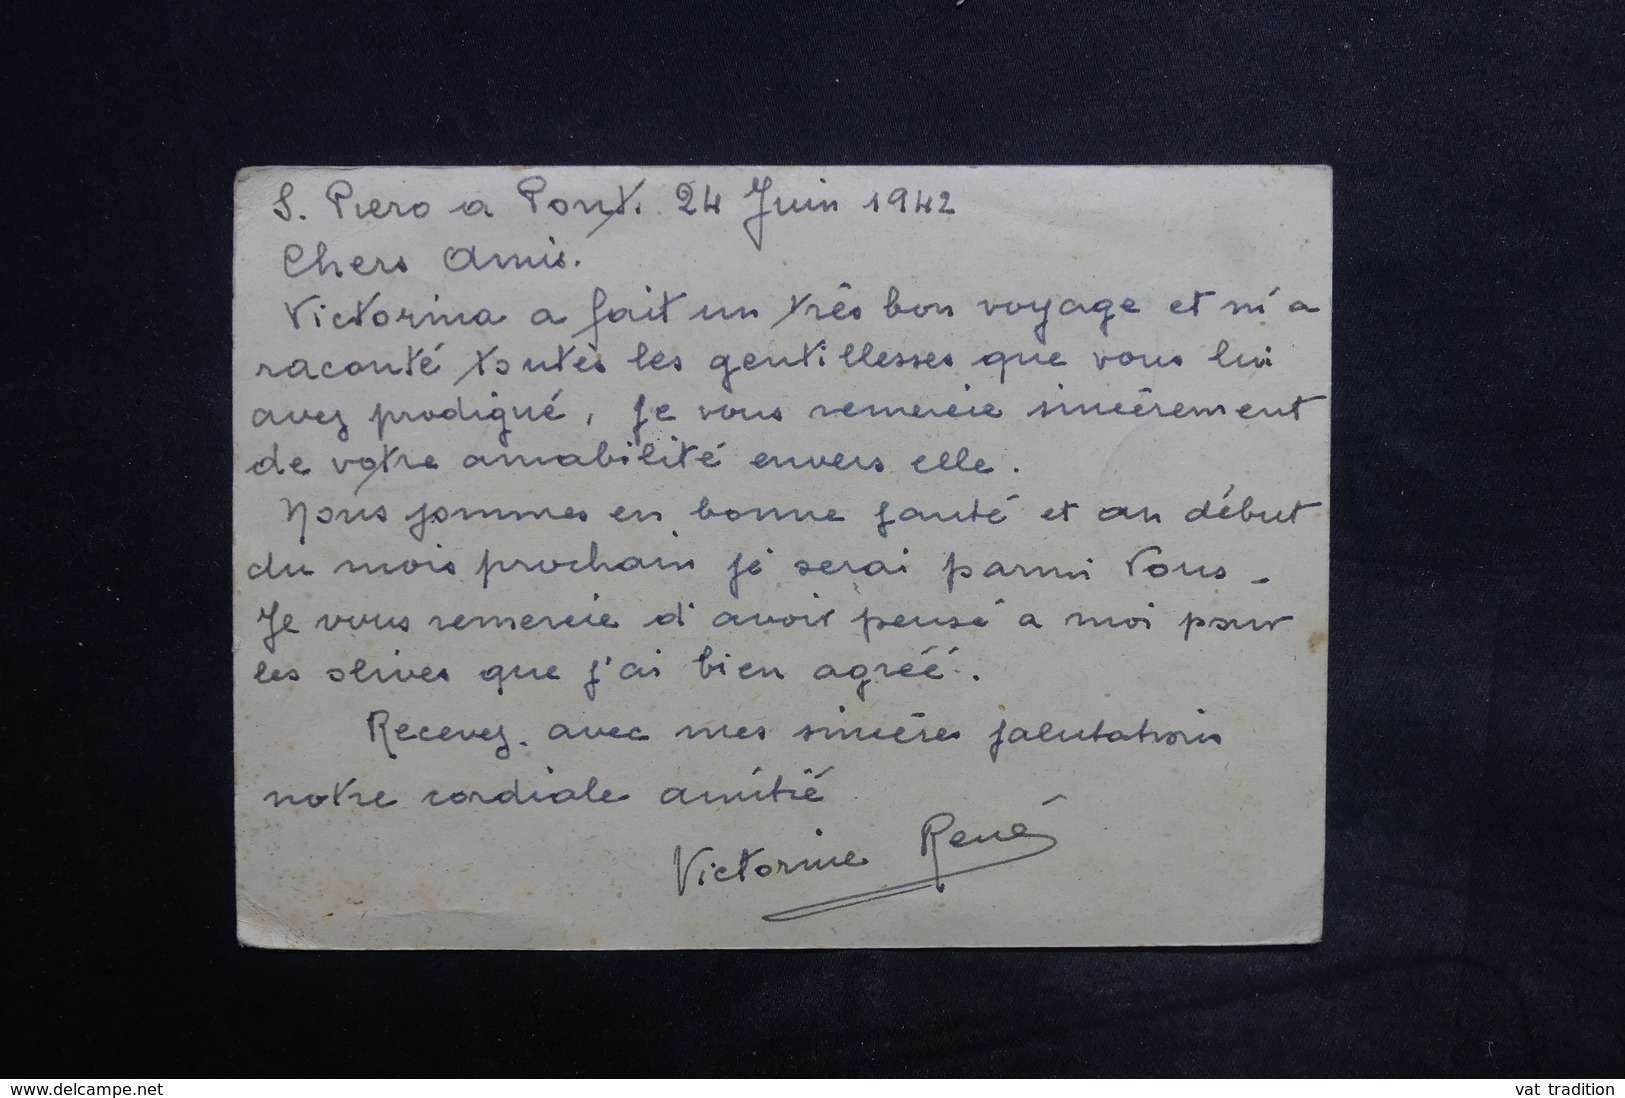 S. Piero a Ponti. 24 Juin 1942
Chers Amis.
Victorina a fait un très bon voyage et m'a
raconté toutes les gentillesses que vous lui
avez prodigué, je vous remercie sincèrement
de votre amabilité envers elle.
Nous sommes en bonne santé et au début
du mois prochain je serai parmi Vous -
Je vous remercie d'avoir pensé a moi pour
les olives que j'ai bien agréé.
Recevez. avec mes sincères salutations
notre cordiale amitié
Victorine René
www.delcampe.net
vat tradition